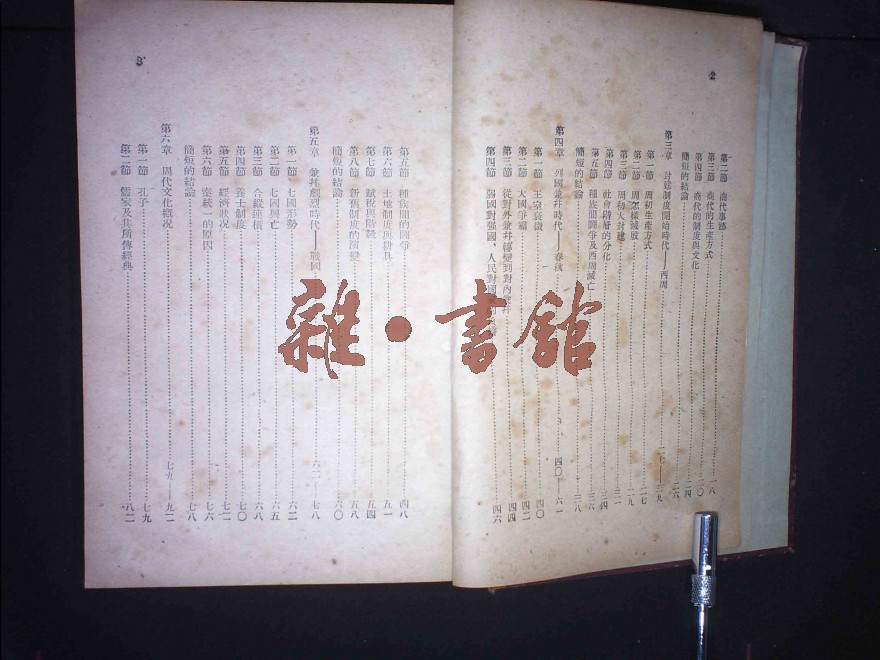 2
第二節 商代事跡……一八
第三節 商代的生產方式……二〇
第四節 商代的制度與文化……二四
簡短的結論……二六
第三章 封建制度開始時代——西周
第一節 周初生產方式……二七
第二節 周怎樣滅殷……二九
第三節 周初大封建……三一
第四節 社會階層的分化……三四
第五節 種族間鬪爭及西周滅亡……三六
簡短的結論……三八
第四章 列國兼并時代——春秋……四〇——六一
第一節 王室衰微……四〇
第二節 大國爭霸……四二
第三節 從對外兼并轉變到對內兼并……四四
第四節 弱國對强國、人民對……四六
3
第五節 種族間的鬪爭……四八
第六節 土地制度與耕具……五一
第七節 賦稅與階級……五四
第八節 新舊制度的演變……五八
簡短的結論……六〇
第五章 兼并劇烈時代——戰國……六二——七八
第一節 七國形勢……六二
第二節 七國興亡……六五
第三節 合縱連橫……六八
第四節 養士制度……七〇
第五節 經濟狀況……七二
第六節 秦統一的原因……七六
簡短的結論……七八
第六章 周代文化概況……七九——九二
第一節 孔子……七九
第二節 儒家及其所傳經典……八二
雜·書館